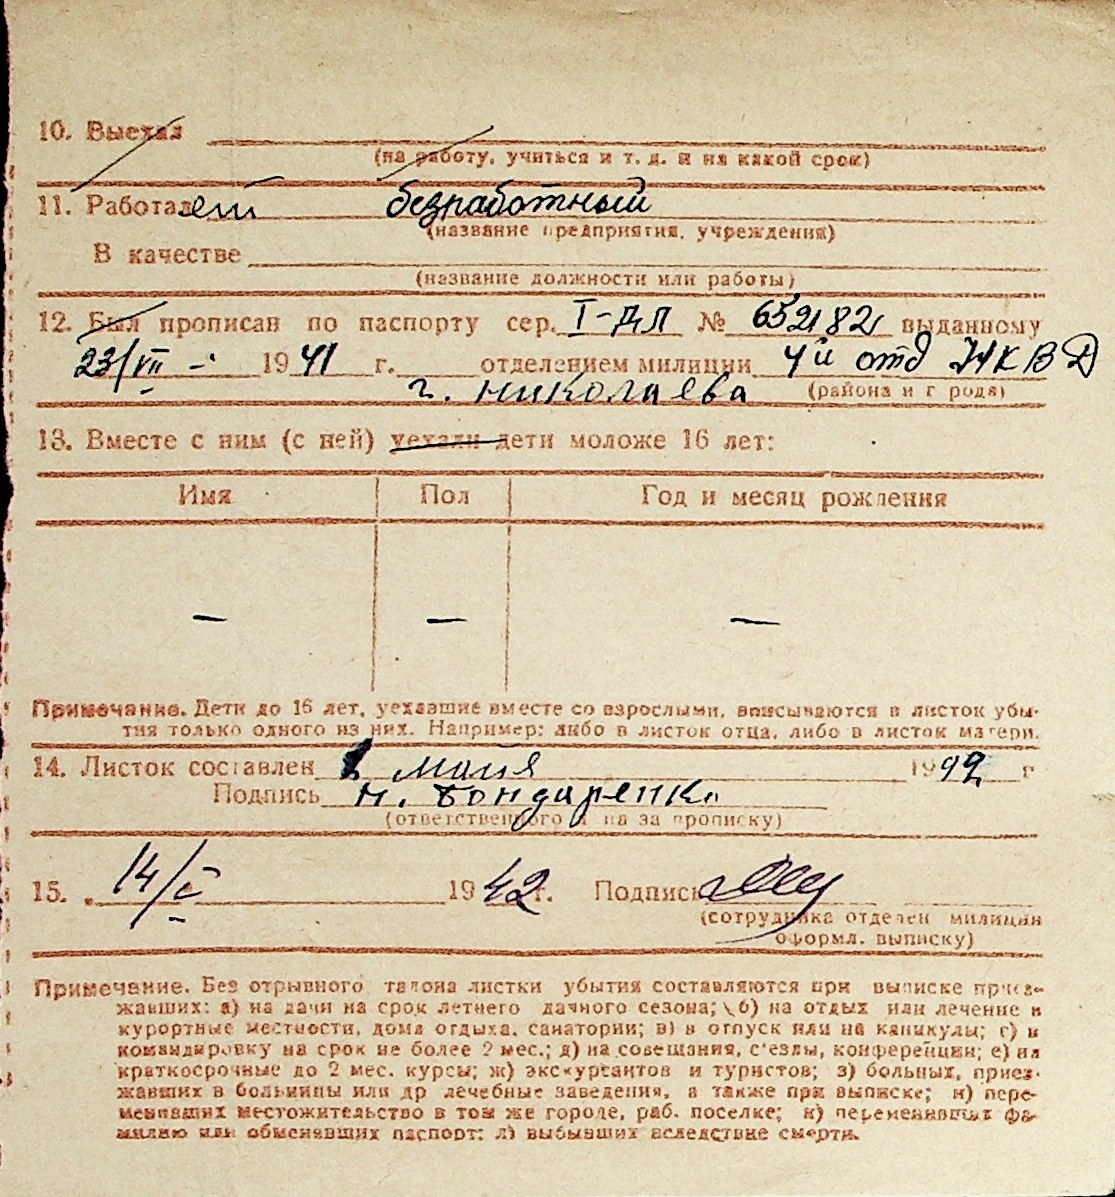 10. Выехал
(на работу, учиться и т. д. и на какой срок)
11. Работает безработный
(название предприятия, учреждения)
В качестве
(название должности или работы)
12. Был прописан по паспорту сер. I-ДЛ № 652182 выданному
23/VII - 1941 г. отделением милиции 4й отд НКВД
г. Николаева (района и г рода)
13. Вместе с ним (с ней) уехали дети моложе 16 лет:
Имя Пол Год и месяц рождения
— — —
Примечание. Дети до 16 лет, уехавшие вместе со взрослыми, вписываются в листок убы-
тия только одного из них. Например: либо в листок отца, либо в листок матери.
14. Листок составлен мая 1942 г
Подпись Н. Бондаренко
(ответственного на за прописку)
15. 14/V 1942 г. Подпись
(сотрудника отделен милиции
оформл. выписку)
Примечание. Без отрывного талона листки убытия составляются при выписке приез-
жавших: а) на дачи на срок летнего дачного сезона; б) на отдых или лечение в
курортные местности, дома отдыха, санатории; в) в отпуск или на каникулы; г) в
командировку на срок не более 2 мес.; д) на совещания, с'езды, конференции; е) на
краткосрочные до 2 мес. курсы; ж) экскурсантов и туристов; з) больных, приез-
жавших в больницы или др лечебные заведения, а также при выписке; и) пере-
менивших местожительство в том же городе, раб. поселке; к) переменивших фа-
милию или обменявших паспорт; л) выбывших вследствие смерти.